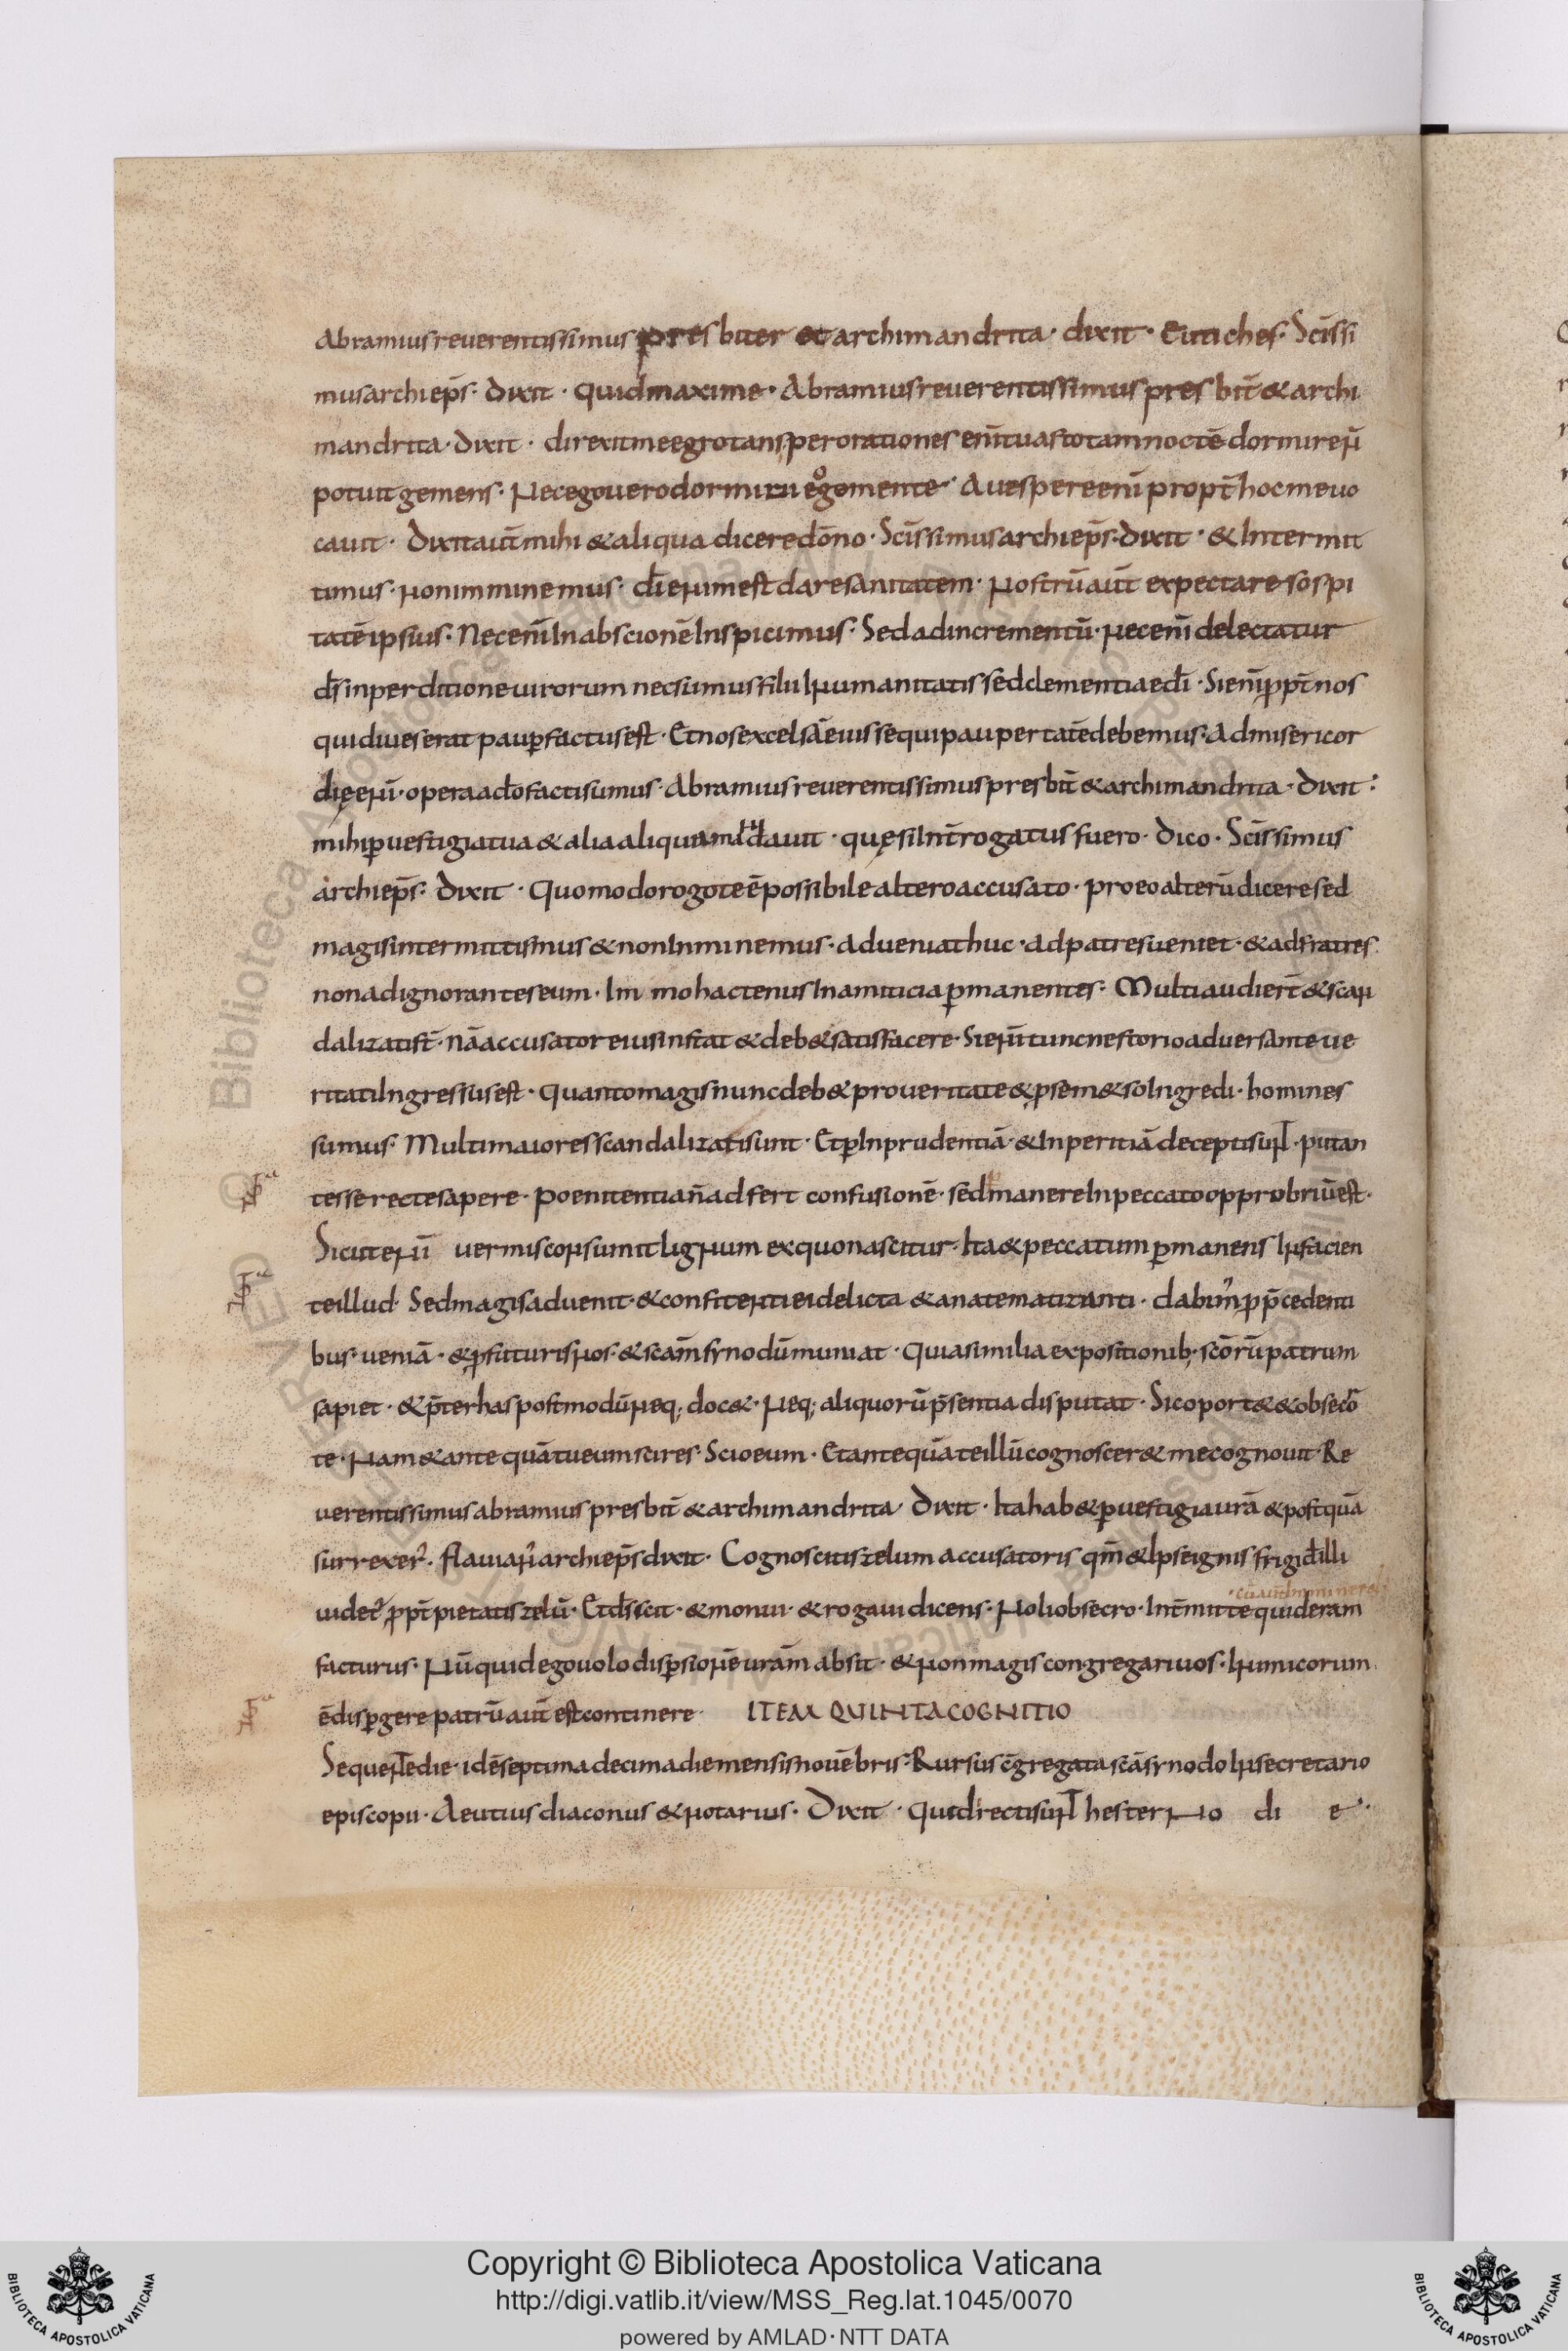 Abramius reuerentissimus presbiter et archimandrita · dixit · Eutiches · Sc̄issi
mus archiep̄s · Dixit · Quid maxime · Abramius reuerentissimus presbit̄ & archi
mandrita · Dixit · direxit me egrotans per orationes eni̅ tuas totam noctē dormire ñ
potuit gemens · Nec ego uero dormiui egomente · A uespere eni̅ propt̄ hoc me uo
cauit · Dixit aut̄ mihi & aliqua dicere dōno · Sc̄issimus archiep̄s · dixit · & Intermit
timus · non imminemus · dī enim est dare sanitatem · Nostrū aut̄ expectare sospi
tatē ipsius · Nec eni̅ In abscionē Inspicimus · Sed ad incrementū · Nec eni̅ delectatur
d̄s in perditione uirorum nec sumus filii Inumanitatis sed clementiae dī · Si eni̅ ꝓpt̄ nos
qui diues erat paup̱ factus est · Et nos excelsā eius sequi paupertatē debemus · Ad misericor
dię enī · opera a d̄o facti sumus · Abramius reuerentissimus presbit̄ & archimandrita · Dixit :
mihi p̱ uestigia tua & alia aliqua mandauit · quę si Int̄rogatus fuero · Dico · Sc̄issimus
archiep̄s · Dixit · Quomodo rogo te ē possibile altero accusato · pro eo alterū dicere sed
magis intermittimus & non Inminemus · Adueniat huc · Ad patres ueniet · & ad fratres
non ad ignorantes eum · Im mo hactenus In amiticia p̱manentes · Multi audier̄t & scan
dalizati st̄ · Nā accusator eius instat & deb& satisfacere · Si enī tunc nestorio aduersante ue
ritati Ingressus est · Quanto magis nunc deb& pro ueritate & p̱ sem&so Ingredi · homines
sumus · Multi maiores scandalizati sunt · Et p̱ Inprudentiā · & Inperitiā decepti sunt · putan
tes se recte sapere · Poenitentia n̄ adfert confusionē · sed manere In peccato opprobriū est ·
Sicut enī uermis consumit lignum ex quo nascitur · Ita & peccatum p̱manens In facien
te illud · Sed magis aduenit · & confitenti ei delicta & anatematizanti · dabim᷒ ꝓ p̄cedenti
bus ueniā · & ꝓ futuris nos · & sc̄am synodū muniat · Quia similia expositionib; sc̄orū patrum
sapiet · & p̄ter has postmodū neq; doc& · Neq; aliquorū p̄sentia disputat · Sic oport& & obsecro
te · Nam & ante quā tu eum scires · Scio eum · Et ante quā te illū cognoscer& me cognouit · Re
uerentissimus abramius presbit̄ & archimandrita · Dixit · Ita hab& p̱ uestigia ur̄a & postquā
surrexer᷒ · flauian᷒ archiep̄s dixit · Cognoscitis zelum accusatoris qm̄ & Ipse ignis frigid᷒ illi
uidet᷒ ꝓpt̄ pietatis zelū · Et d̄s scit · & monui · & rogaui dicens · Noli obsecro · Int̄mitte quid eram
facturus · Nū quid ego uolo disp̱sionē ur̄am absit · & non magis congregari uos · Inimicorum
ē disp̱gere patrū aut̄ est continere · ITEM QUINTA COGNITIO
Sequenti die · id ē septima decima die mensis nouēbris · Rursus c̄gregata sc̄ā synodo In secretario
episcopii · Aeutius diaconus & notarius · Dixit · Qui directi sunt hesterno di e ·
Copyright © Biblioteca Apostolica Vaticana
http://digi.vatlib.it/view/MSS_Reg.lat.1045/0070
powered by AMLAD·NTT DATA
BIBLIOTECA APOSTOLICA VATICANA
BIBLIOTECA APOSTOLICA VATICANA